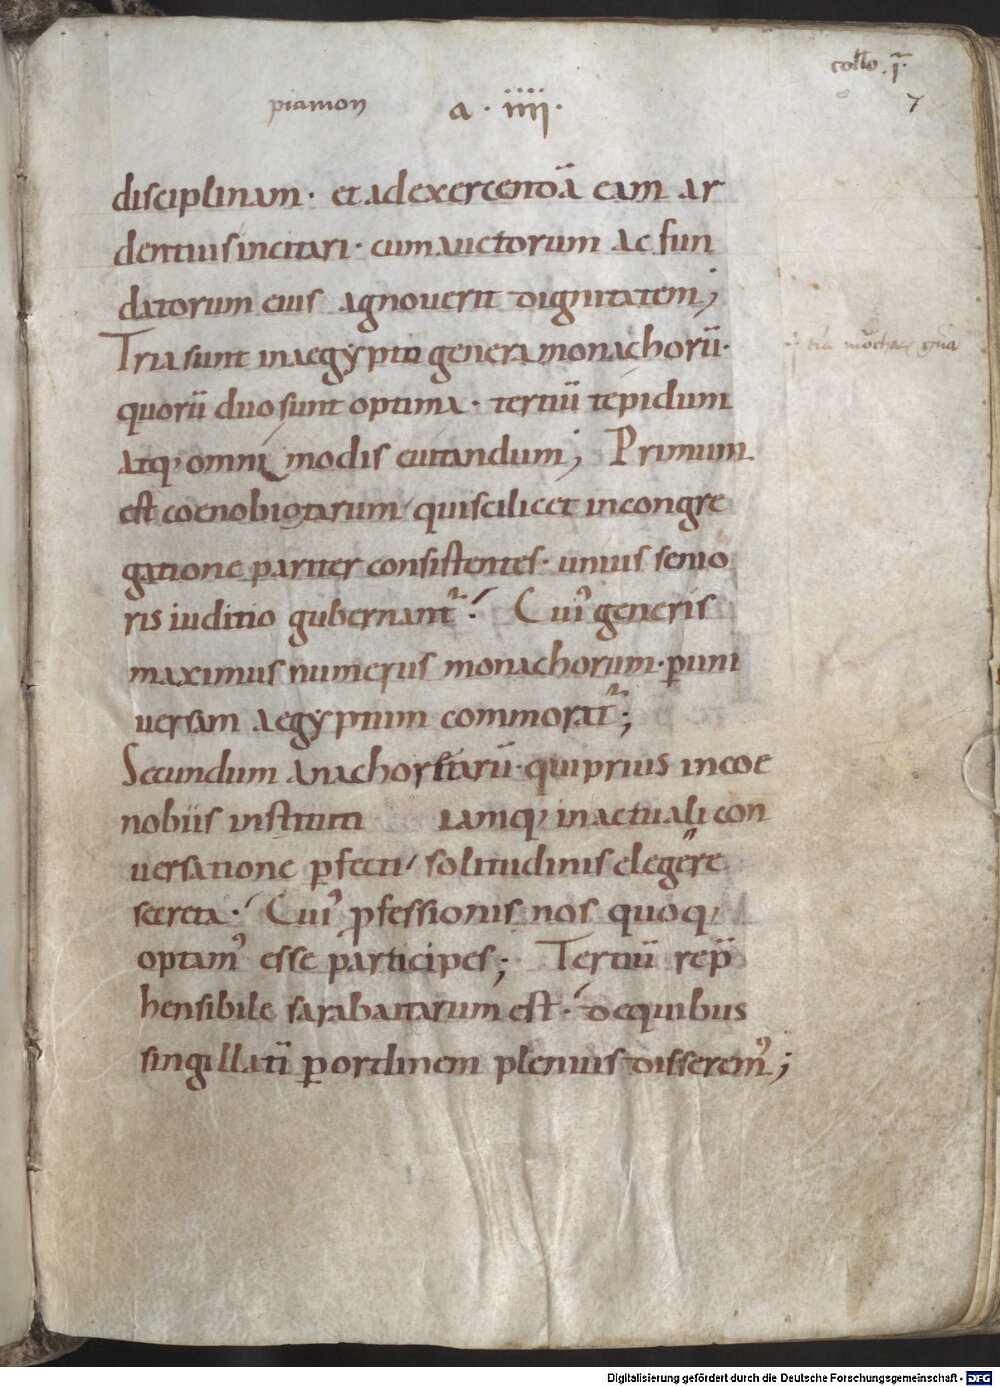 collo .ī.
7
piamon a · iiii ·
disciplinam · et ad exercendā eam ar
dentius incitari · cum auctorum ac fun
datorum eius agnouerit dignitatem ;
Tria sunt in aegypto genera monachorū ·
quorū duo sunt optima · tertiū tepidum
atq; omni modis euitandum ; Primum
est coenobiotarum qui scilicet in congre
gatione pariter consistentes · unius senio
ris iuditio gubernant᷑ : Cui᾿ generis
maximus numerus monachorum · ꝑ uni
uersam aegyptum commorat᷑ ;
Secundum anachoretarū · qui prius in coe
nobiis instituti iamq; in actuali con
uersatione ꝑfecti solitudinis elegere
secreta · Cui᾿ ꝓfessionis nos quoq;
optam᾿ esse participes ; Tertiū rep̄
hensibile sarabaitarum est · de quibus
singillatī ꝑ ordinem plenius disserem᾿ ;
Digitalisierung gefördert durch die Deutsche Forschungsgemeinschaft - DFG